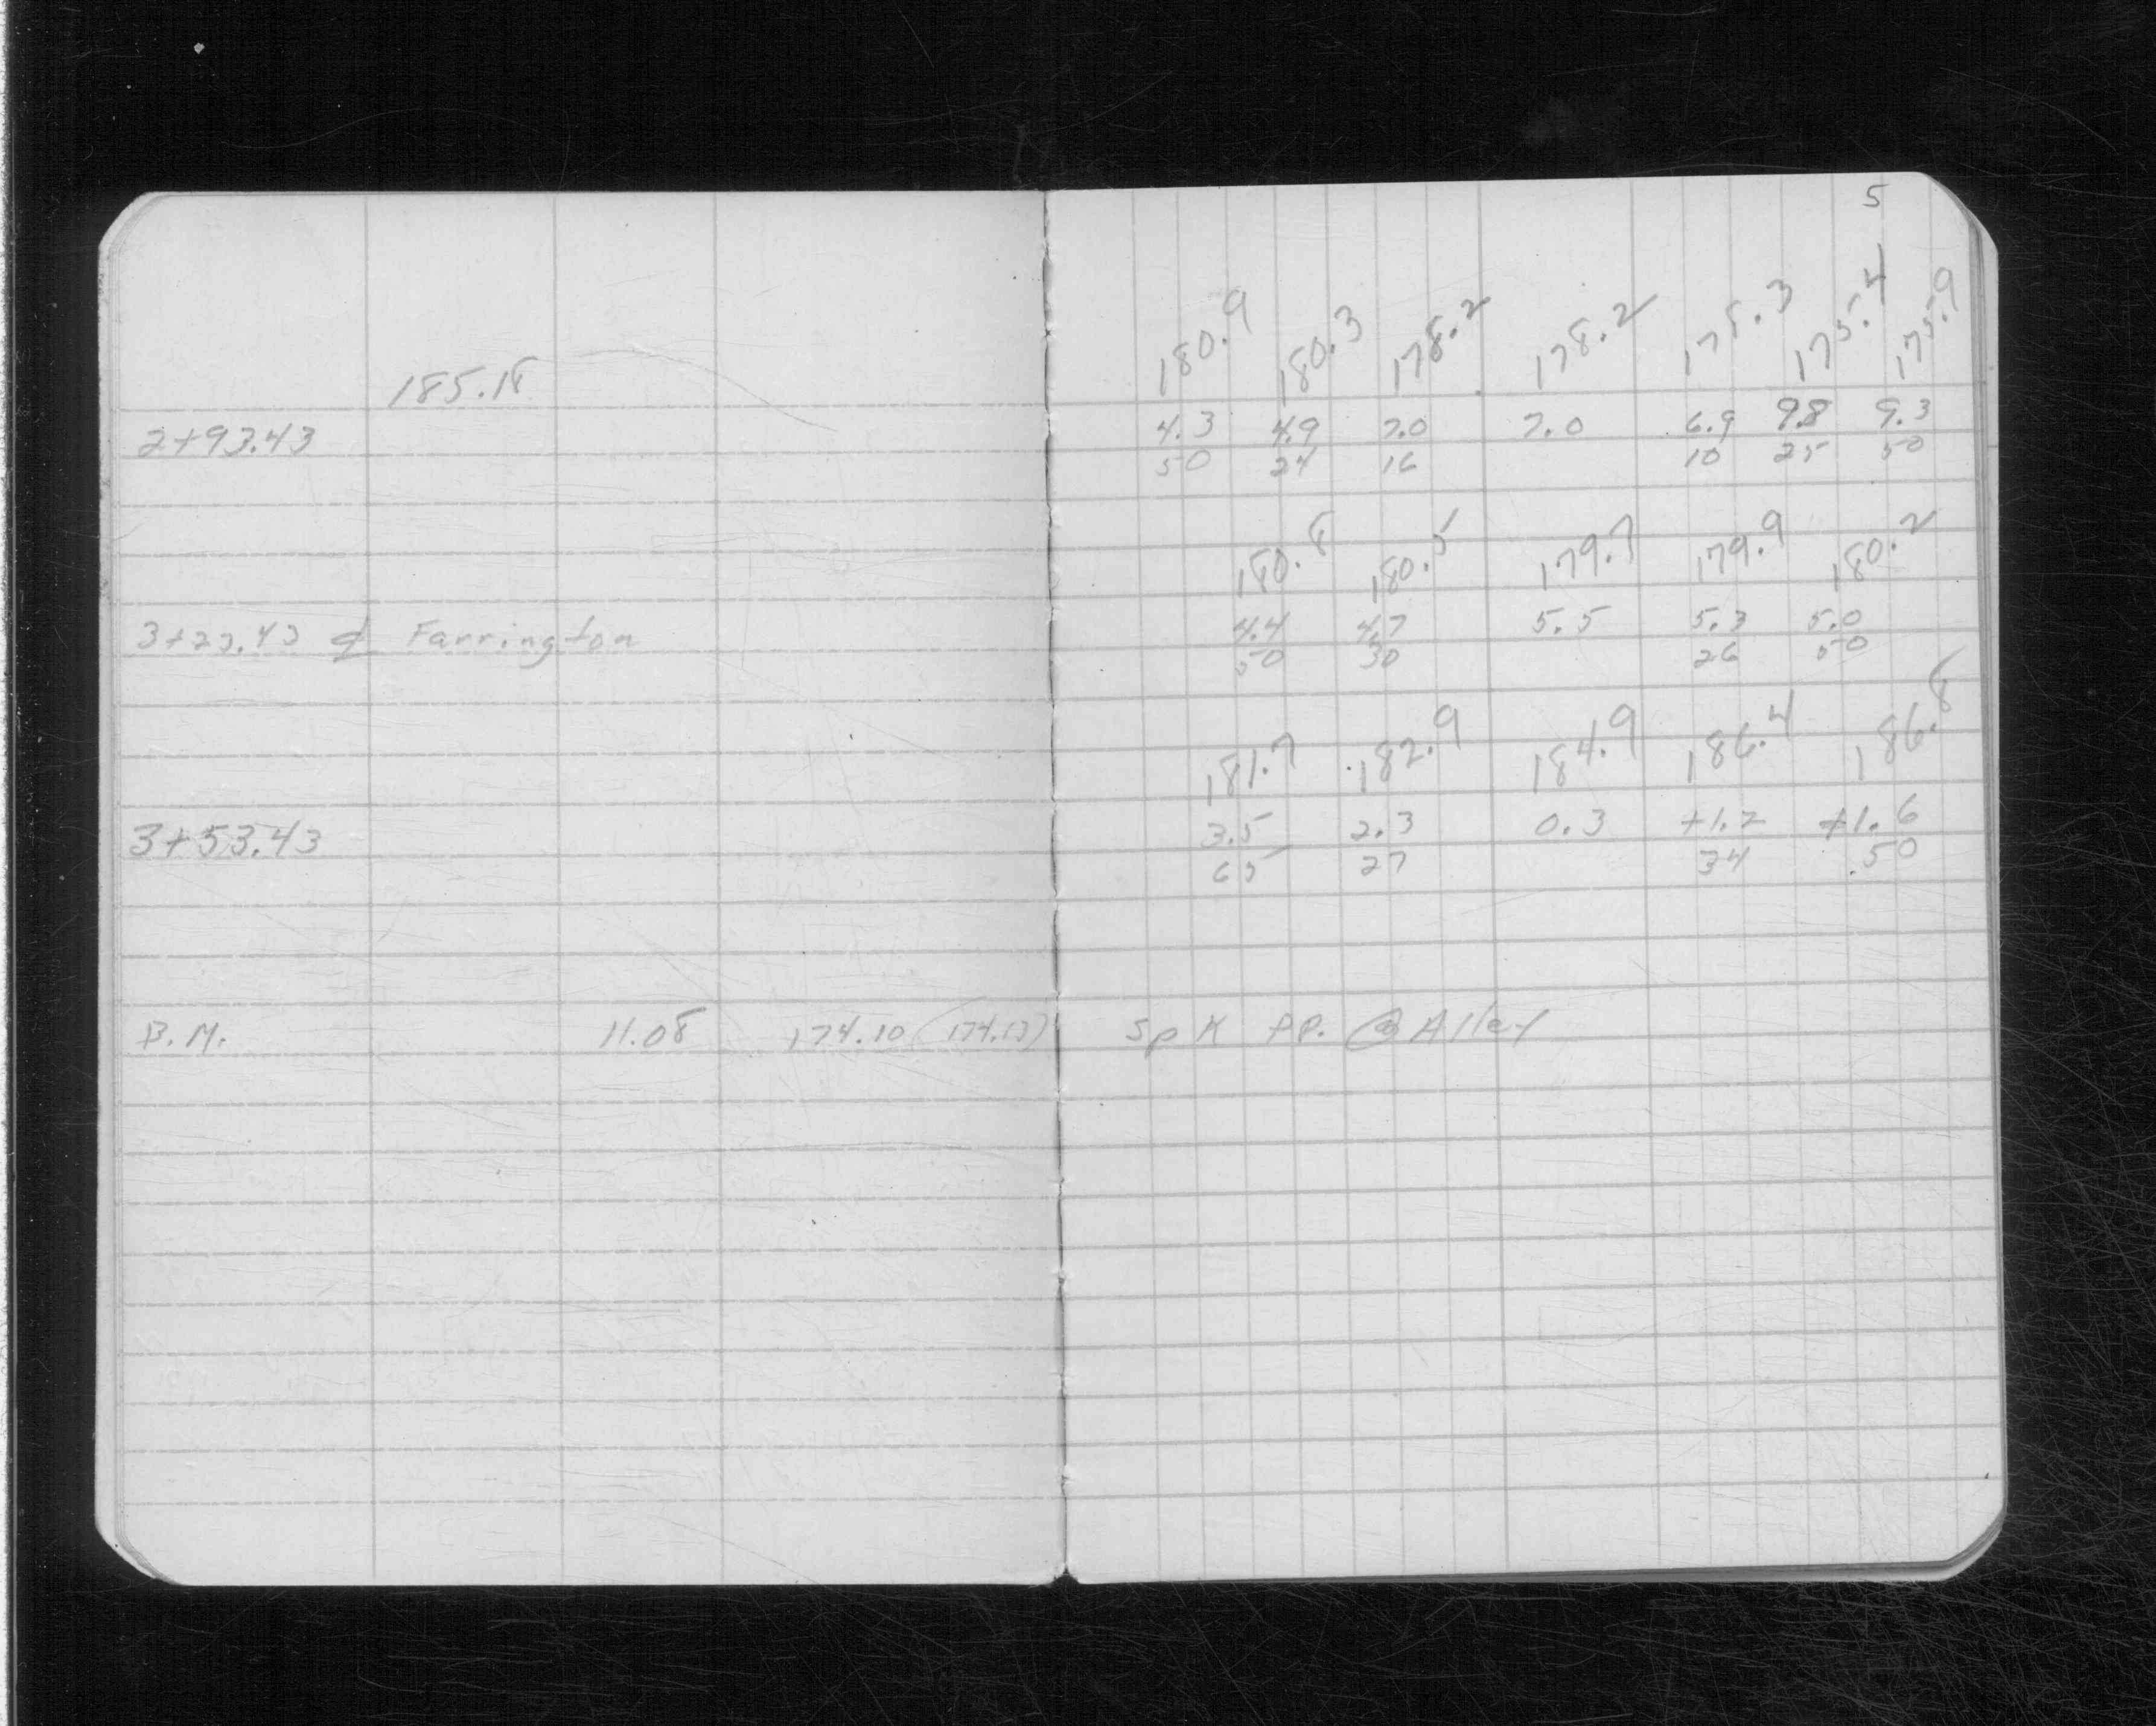 5
180.9 180.3 178.2 178.2 175.3 175.4 175.9
185.18
2+93.43 4.3 4.9 7.0 7.0 6.9 9.8 9.3
50 24 16 10 25 50
180.8 180.5 179.7 179.9 180.2
3+23.43 ℄ Farrington 4.4 4.7 5.5 5.3 5.0
50 30 26 50
181.7 182.9 184.9 186.4 186.8
3+53.43 3.5 2.3 0.3 +1.2 +1.6
65 27 34 50
B.M. 11.08 174.10 (174.13) Spk P.P. @ Alley